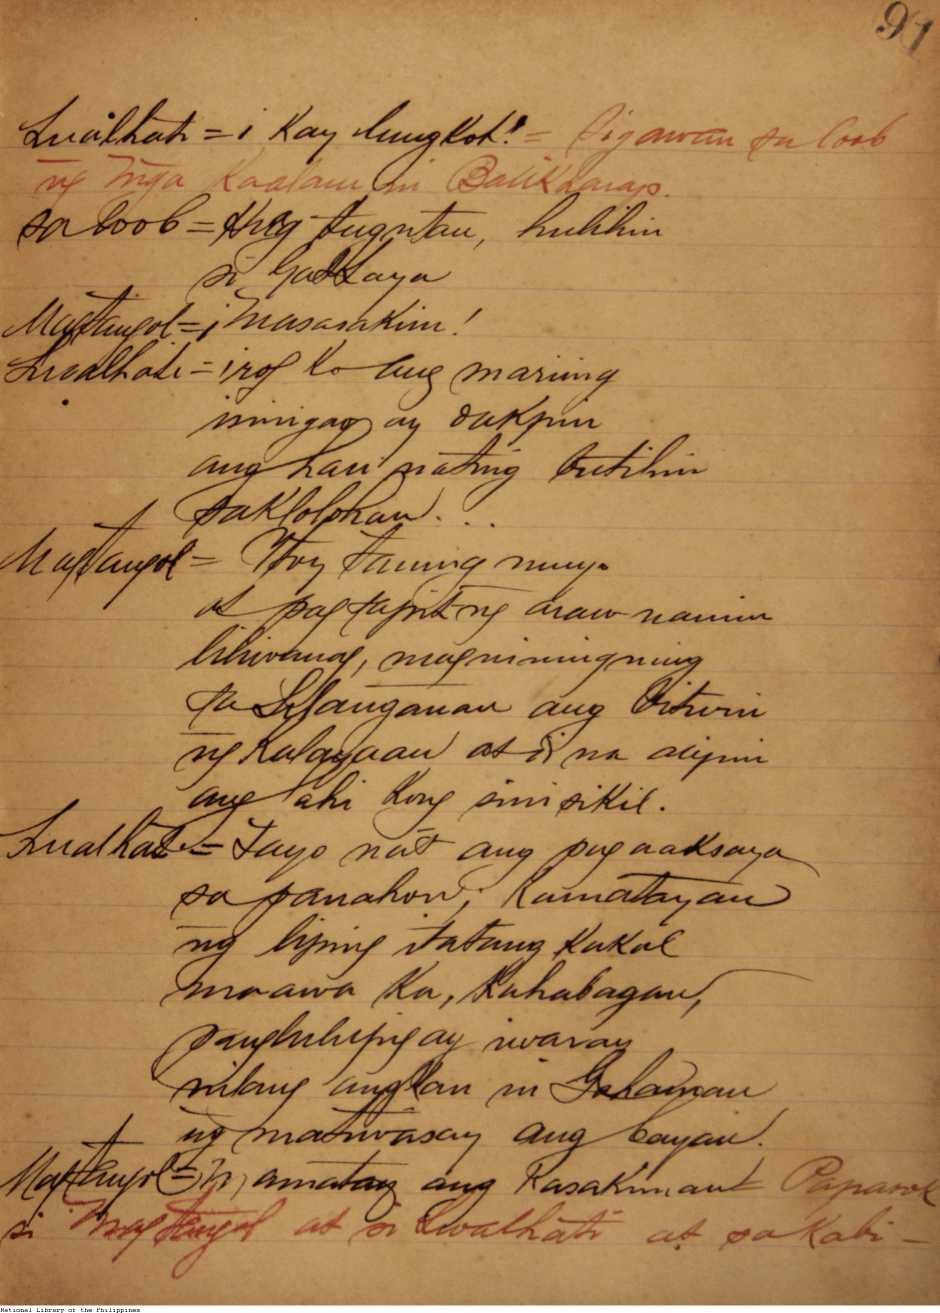 91
Lualhati = ¡Kay lungkot! = Sigawan sa loob
ng mga kaalam ni Balikharap.
sa loob = tugntan, hulihin
si GatKaya
Magtangol = ¡Masasakim!
Lualhati = irog ko ang mariing
inihigaw ay dakpin
ang hari nating butihin
saklolohan. . .
Magtangol = Itoy taning ninyo
at pag sapit ng araw namin
liliwanag, magniningning
sa Silanganan ang bituin
ng kalayaan at di na alipin
ang lahi kong sinisikil.
Lualhati = Tayo na't ang pagaaksaya
sa panahon, kamatayan
ng liping itatang kakal
maawa ka, kahabagan,
panghihip ay iwaray
nilang angkan ni Gahaman
ng matiwasay ang bayan.
Magtangol = Mamatay ang kasakiman! Papasok
si Magtangol at si Lwalhati at sa kabi-
National Library of the Philippines